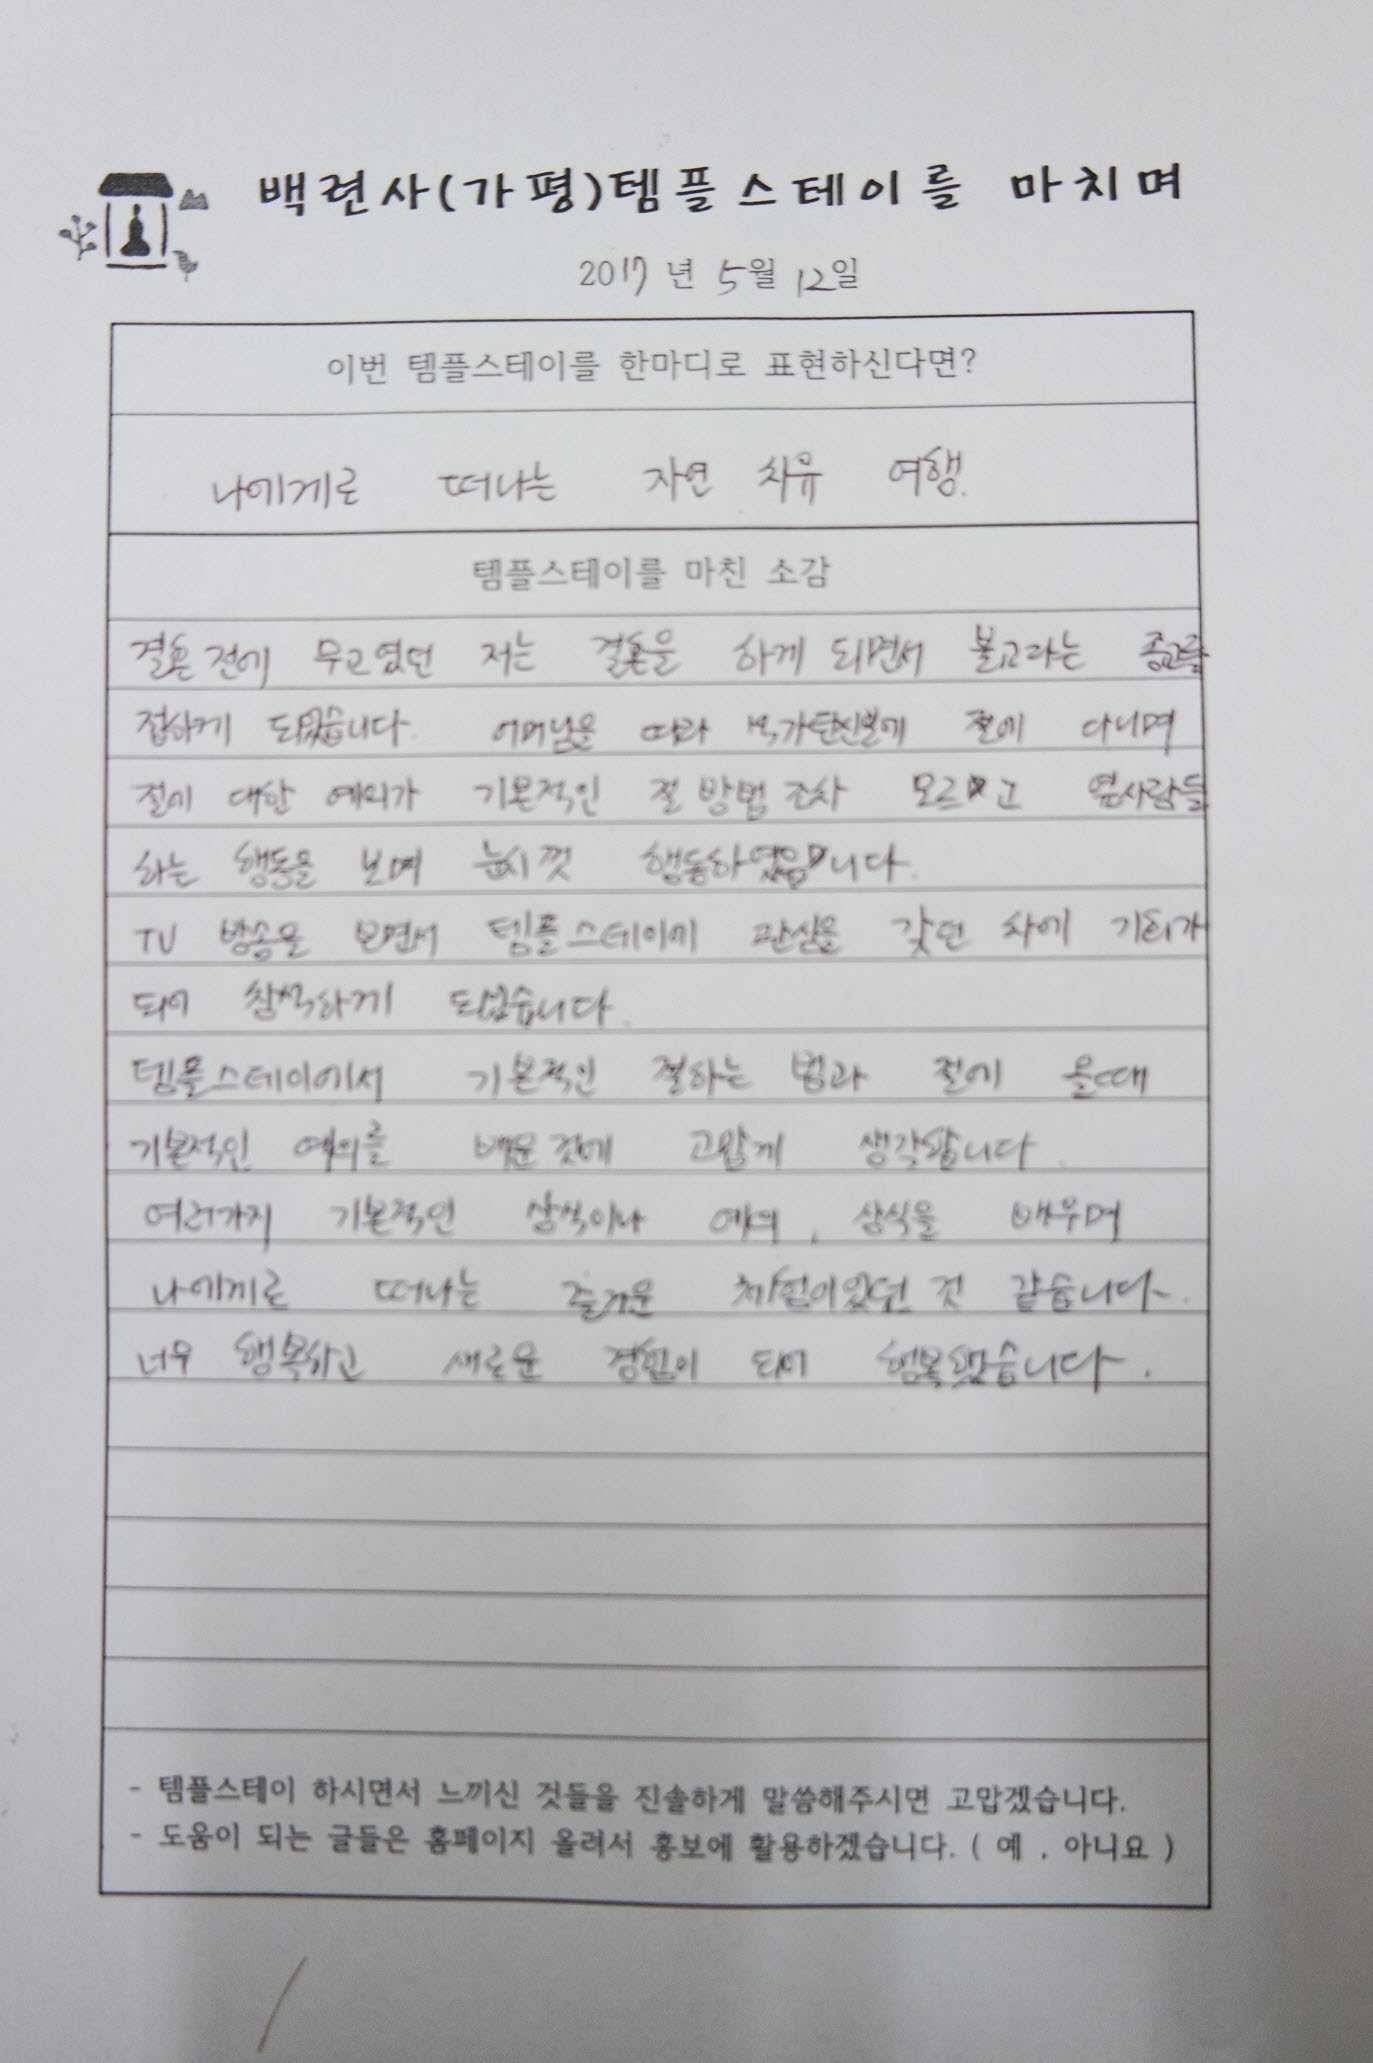 백련사(가평)템플스테이를 마치며
2017년 5월 12일
이번 템플스테이를 한마디로 표현하신다면?
나에게로 떠나는 자연 치유 여행.
템플스테이를 마친 소감
결혼전에 무교였던 저는 결혼을 하게 되면서 불교라는 종교를
접하게 되었습니다. 어머님을 따라 석가탄신일에 절에 다니며
절에 대한 예의가 기본적인 절 방법조차 모르고 옆사람들
하는 행동을 보며 눈치껏 행동하였습니다.
TV 방송을 보면서 템플스테이에 관심을 갖던 차에 기회가
되어 참석하게 되었습니다.
템플스테이에서 기본적인 절하는 법과 절에 올때
기본적인 예의를 배운것에 고맙게 생각합니다.
여러가지 기본적인 상식이나 예의, 상식을 배우며
나에게로 떠나는 즐거운 체험이었던 것 같습니다.
너무 행복하고 새로운 경험이 되어 행복했습니다.
- 템플스테이 하시면서 느끼신 것들을 진솔하게 말씀해주시면 고맙겠습니다.
- 도움이 되는 글들은 홈페이지 올려서 홍보에 활용하겠습니다. ( 예 , 아니요 )